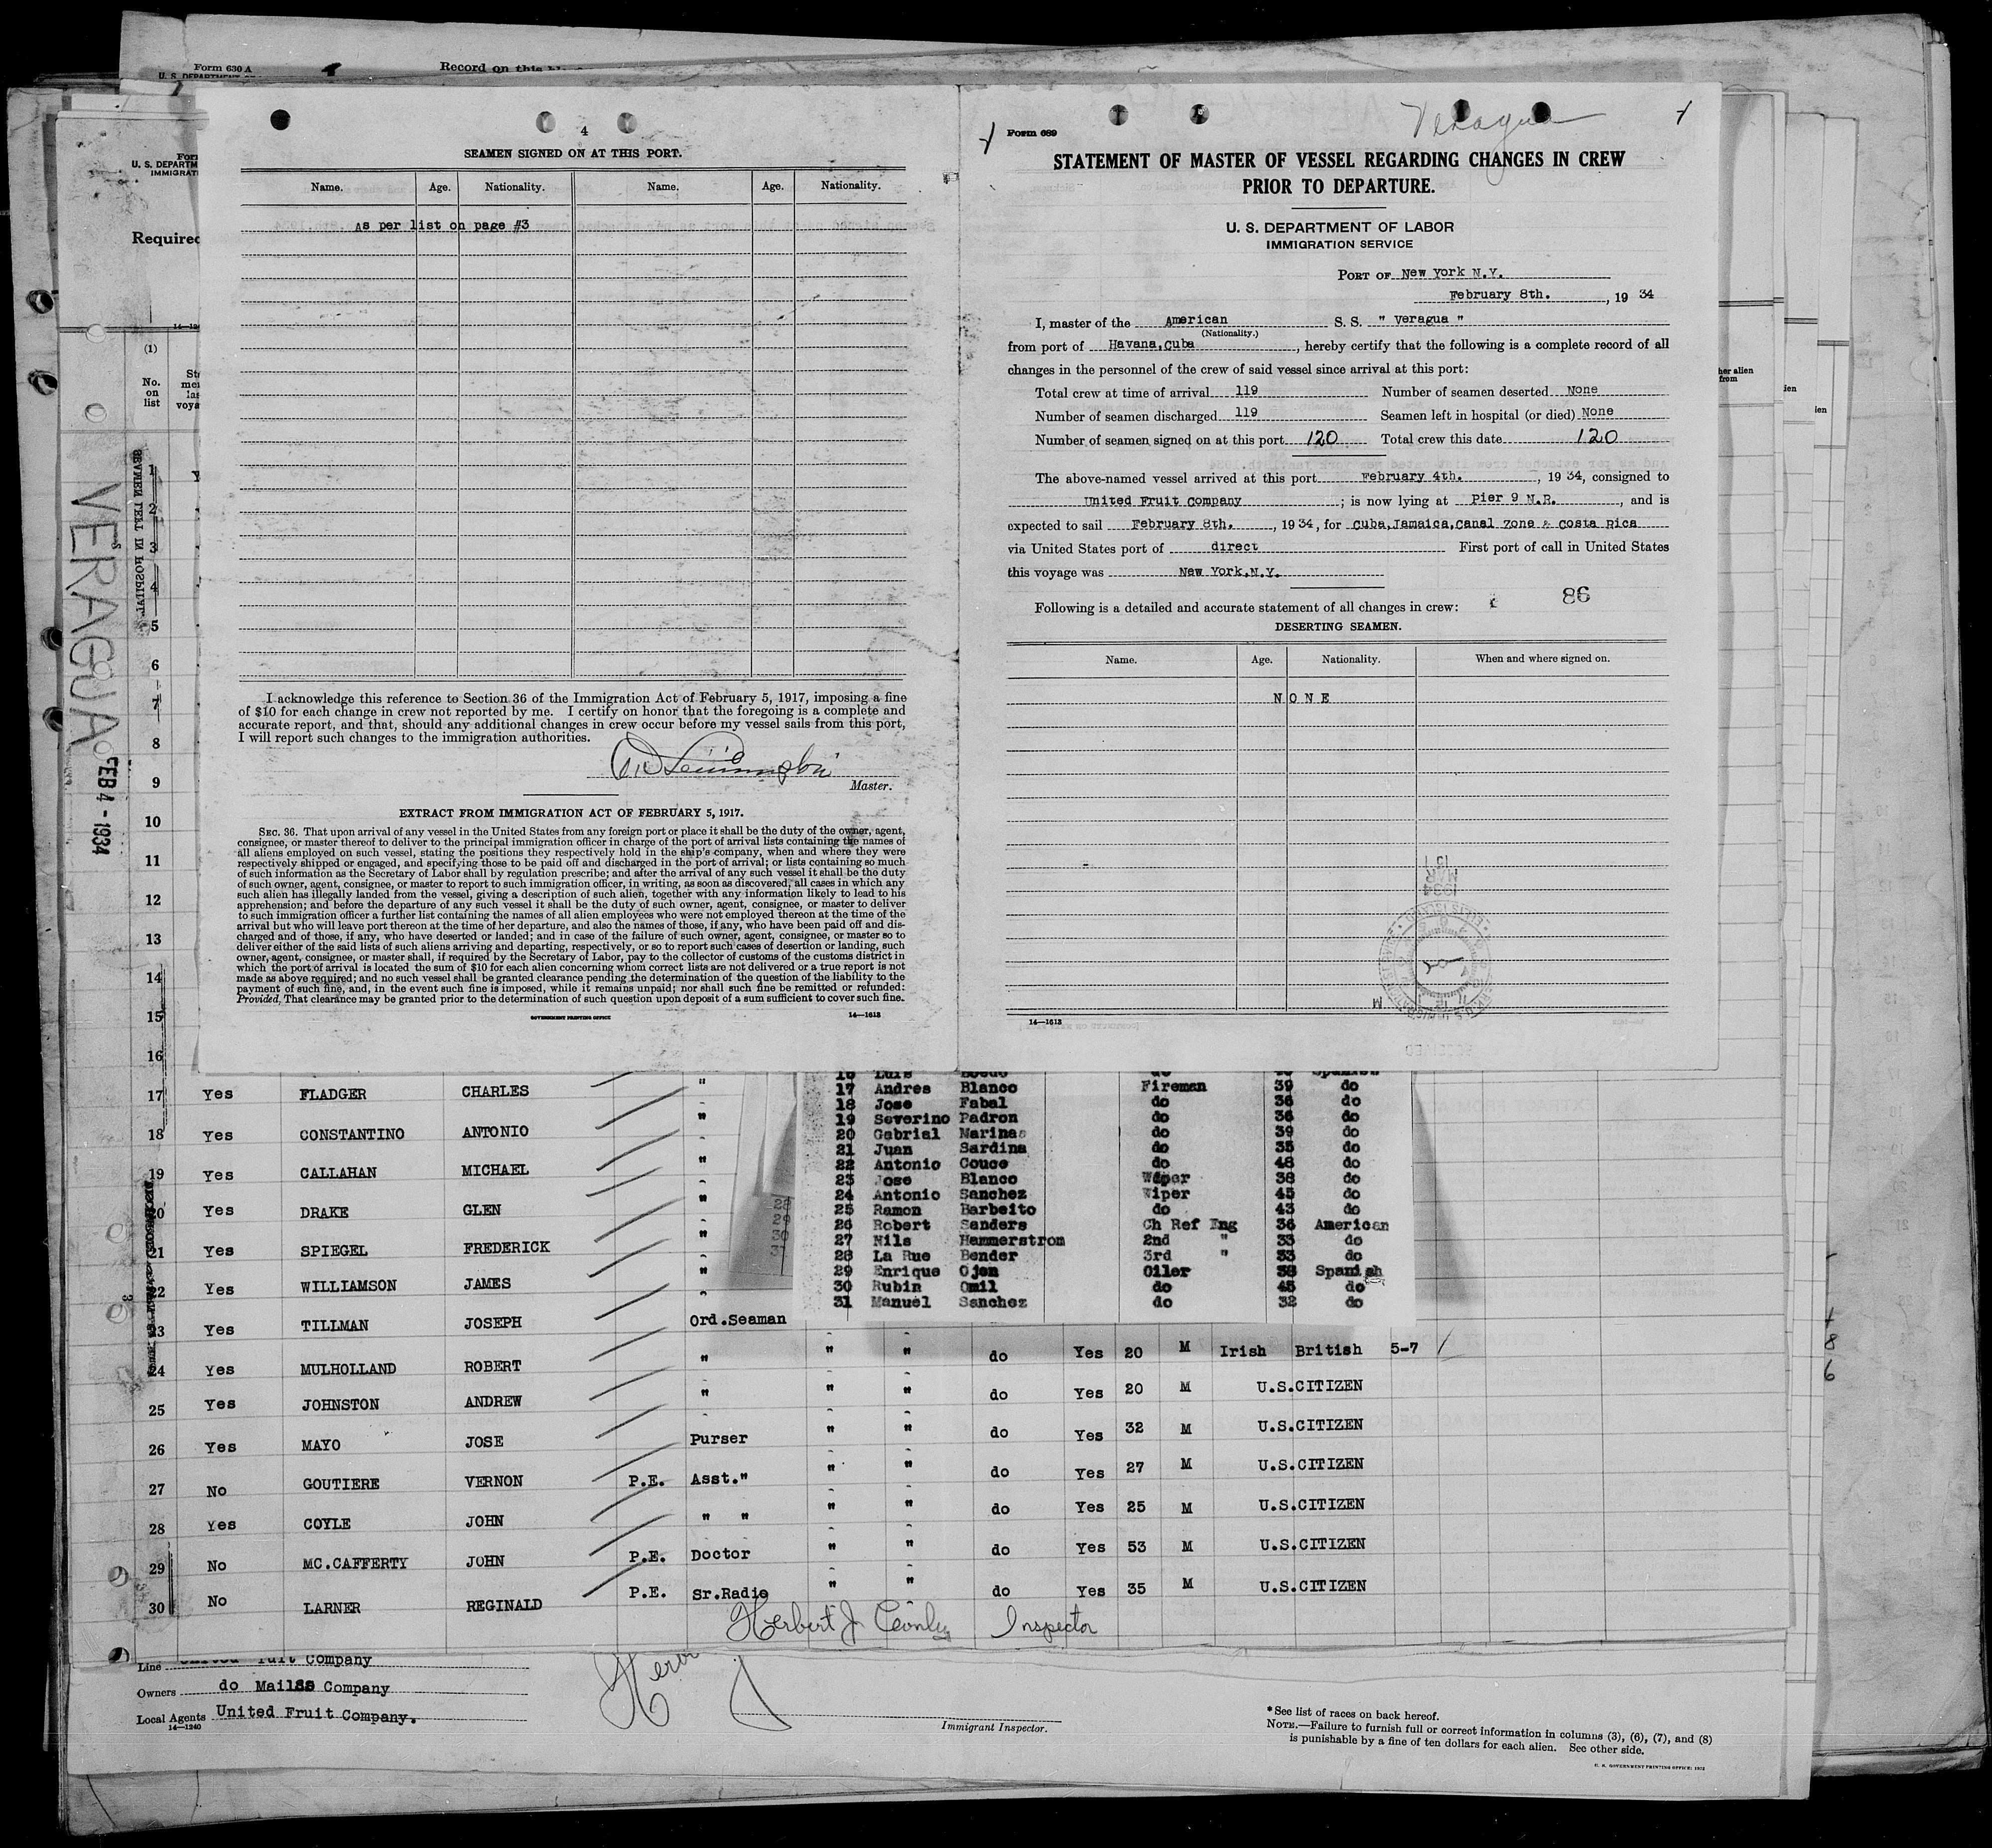 Form 630 A
U. S. DEPARTMENT
Record on this
U. S. DEPARTM
IMMIGRAT
Required
(1)
No.
on
list
VERAGUA
FEB 4 - 1934
SEAMEN LEFT IN HOSPITAL
1
2
3
4
5
6
7
8
9
10
11
12
13
14
15
16
4
SEAMEN SIGNED ON AT THIS PORT.
Name. Age. Nationality. Name. Age. Nationality.
As per list on page #3
I acknowledge this reference to Section 36 of the Immigration Act of February 5, 1917, imposing a fine
of $10 for each change in crew not reported by me. I certify on honor that the foregoing is a complete and
accurate report, and that, should any additional changes in crew occur before my vessel sails from this port,
I will report such changes to the immigration authorities.
Master.
EXTRACT FROM IMMIGRATION ACT OF FEBRUARY 5, 1917.
SEC. 36. That upon arrival of any vessel in the United States from any foreign port or place it shall be the duty of the owner, agent,
consignee, or master thereof to deliver to the principal immigration officer in charge of the port of arrival lists containing the names of
all aliens employed on such vessel, stating the positions they respectively hold in the ship's company, when and where they were
respectively shipped or engaged, and specifying those to be paid off and discharged in the port of arrival; or lists containing so much
of such information as the Secretary of Labor shall by regulation prescribe; and after the arrival of any such vessel it shall be the duty
of such owner, agent, consignee, or master to report to such immigration officer, in writing, as soon as discovered, all cases in which any
such alien has illegally landed from the vessel, giving a description of such alien, together with any information likely to lead to his
apprehension; and before the departure of any such vessel it shall be the duty of such owner, agent, consignee, or master to deliver
to such immigration officer a further list containing the names of all alien employees who were not employed thereon at the time of the
arrival but who will leave port thereon at the time of her departure, and also the names of those, if any, who have been paid off and dis-
charged and of those, if any, who have deserted or landed; and in case of the failure of such owner, agent, consignee, or master so to
deliver either of the said lists of such aliens arriving and departing, respectively, or so to report such cases of desertion or landing, such
owner, agent, consignee, or master shall, if required by the Secretary of Labor, pay to the collector of customs of the customs district in
which the port of arrival is located the sum of $10 for each alien concerning whom correct lists are not delivered or a true report is not
made as above required; and no such vessel shall be granted clearance pending the determination of the question of the liability to the
payment of such fine, and, in the event such fine is imposed, while it remains unpaid; nor shall such fine be remitted or refunded:
Provided, That clearance may be granted prior to the determination of such question upon deposit of a sum sufficient to cover such fine.
GOVERNMENT PRINTING OFFICE 14—1613
Form 689
Veragua
STATEMENT OF MASTER OF VESSEL REGARDING CHANGES IN CREW
PRIOR TO DEPARTURE.
U. S. DEPARTMENT OF LABOR
IMMIGRATION SERVICE
PORT OF New York N.Y.
February 8th. , 19 34
I, master of the American S. S. " Veragua "
(Nationality.)
from port of Havana,Cuba , hereby certify that the following is a complete record of all
changes in the personnel of the crew of said vessel since arrival at this port:
Total crew at time of arrival 119 Number of seamen deserted None
Number of seamen discharged 119 Seamen left in hospital (or died) None
Number of seamen signed on at this port 120 Total crew this date 120
The above-named vessel arrived at this port February 4th. , 19 34, consigned to
United Fruit Company ; is now lying at Pier 9 N.R. , and is
expected to sail February 8th. , 19 34, for Cuba,Jamaica,Canal Zone & Costa Rica
via United States port of direct First port of call in United States
this voyage was New York,N.Y.
86
Following is a detailed and accurate statement of all changes in crew:
DESERTING SEAMEN.
Name. Age. Nationality. When and where signed on.
N O N E
14—1613
17 Yes FLADGER CHARLES "
18 Yes CONSTANTINO ANTONIO "
19 Yes CALLAHAN MICHAEL "
20 Yes DRAKE GLEN "
21 Yes SPIEGEL FREDERICK "
22 Yes WILLIAMSON JAMES "
23 Yes TILLMAN JOSEPH Ord.Seaman
17 Andres Blanco Fireman 39 do
18 Jose Fabal do 36 do
19 Severino Padron do 36 do
20 Gabrial Marinas do 39 do
21 Juan Sardina do 35 do
22 Antonio Couce do 48 do
23 Jose Blanco Wiper 38 do
24 Antonio Sanchez Wiper 45 do
25 Ramon Barbeito do 43 do
26 Robert Sanders Ch Ref Eng 36 American
27 Nils Hammerstrom 2nd " 33 do
28 La Rue Bender 3rd " 33 do
29 Enrique Ojen Oiler 38 Spanish
30 Rubin Omil do 45 do
31 Manuel Sanchez do 32 do
24 Yes MULHOLLAND ROBERT " " " do Yes 20 M Irish British 5-7
25 Yes JOHNSTON ANDREW " " " do Yes 20 M U.S.CITIZEN
26 Yes MAYO JOSE Purser " " do Yes 32 M U.S.CITIZEN
27 No GOUTIERE VERNON P.E. Asst." " " do Yes 27 M U.S.CITIZEN
28 Yes COYLE JOHN " " " " do Yes 25 M U.S.CITIZEN
29 No MC.CAFFERTY JOHN P.E. Doctor " " do Yes 53 M U.S.CITIZEN
30 No LARNER REGINALD P.E. Sr.Radio " " do Yes 35 M U.S.CITIZEN
Herbert J Inspector
Line Company
Owners do Mail Company
Local Agents United Fruit Company.
14—1240
Immigrant Inspector.
*See list of races on back hereof.
NOTE.—Failure to furnish full or correct information in columns (3), (6), (7), and (8)
is punishable by a fine of ten dollars for each alien. See other side.
U. S. GOVERNMENT PRINTING OFFICE: 1932